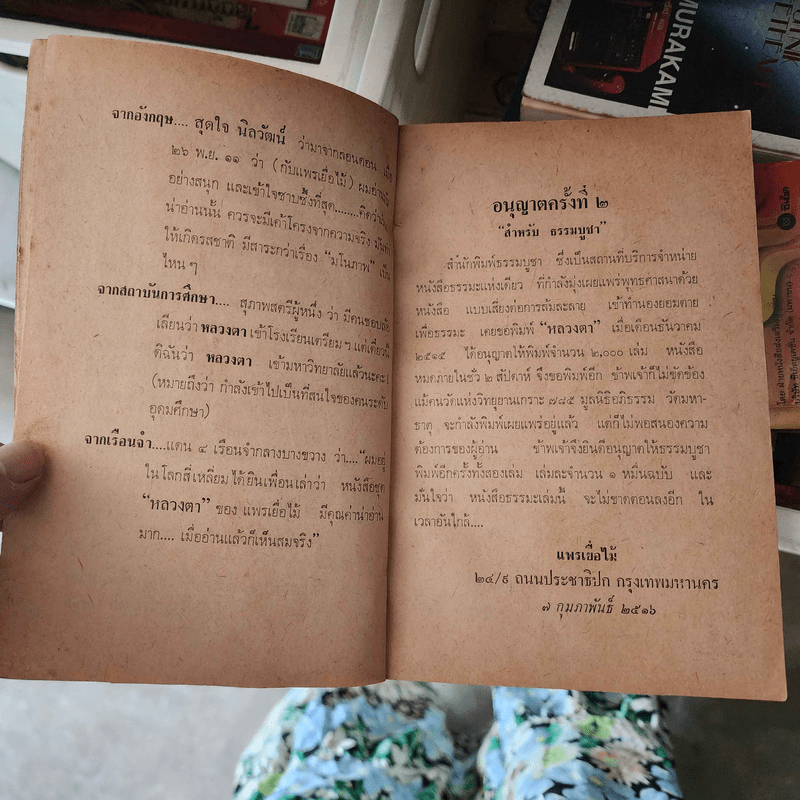 จากอังกฤษ.... สุดใจ นิลวัฒน์ ว่ามาจากลอนดอน เมื่อ
๒๖ พ.ย. ๑๑ ว่า (กับแพรเยื่อไม้) ผมอ่าน
อย่างสนุก และเข้าใจซาบซึ้งที่สุด........คิดว่า
น่าอ่านนั้น ควรจะมีเค้าโครงจากความจริง มัน
ให้เกิดรสชาติ มีสาระกว่าเรื่อง "มโนภาพ" เป็น
ไหน ๆ
จากสถาบันการศึกษา.... สุภาพสตรีผู้หนึ่ง ว่า มีคนชอบล้อ
เลียนว่า หลวงตา เข้าโรงเรียนเตรียม ฯ แต่เดี๋ยวนี้
ดิฉันว่า หลวงตา เข้ามหาวิทยาลัยแล้วนะคะ !
(หมายถึงว่า กำลังเข้าไปเป็นที่สนใจของคนระดับ
อุดมศึกษา)
จากเรือนจำ....แดน ๔ เรือนจำกลางบางขวาง ว่า...."ผมอยู่
ในโลกสี่เหลี่ยม ได้ยินเพื่อนเล่าว่า หนังสือชุด
"หลวงตา" ของ แพรเยื่อไม้ มีคุณค่าน่าอ่าน
มาก.... เมื่ออ่านแล้วก็เห็นสมจริง"
อนุญาตครั้งที่ ๒
"สำหรับ ธรรมบูชา"
สำนักพิมพ์ธรรมบูชา ซึ่งเป็นสถานที่บริการจำหน่าย
หนังสือธรรมะแห่งเดียว ที่กำลังมุ่งเผยแพร่พุทธศาสนาด้วย
หนังสือ แบบเสี่ยงต่อการล้มละลาย เข้าทำนองยอมตาย
เพื่อธรรมะ เคยขอพิมพ์ "หลวงตา" เมื่อเดือนธันวาคม
๒๕๑๕ ได้อนุญาตให้พิมพ์จำนวน ๒,๐๐๐ เล่ม หนังสือ
หมดภายในชั่ว ๒ สัปดาห์ จึงขอพิมพ์อีก ข้าพเจ้าก็ไม่ขัดข้อง
แม้คนวัดแห่งวิทยุยานเกราะ ๗๘๕ มูลนิธิอภิธรรม วัดมหา-
ธาตุ จะกำลังพิมพ์เผยแพร่อยู่แล้ว แต่ก็ไม่พอสนองความ
ต้องการของผู้อ่าน ข้าพเจ้าจึงยินดีอนุญาตให้ธรรมบูชา
พิมพ์อีกครั้งทั้งสองเล่ม เล่มละจำนวน ๑ หมื่นฉบับ และ
มั่นใจว่า หนังสือธรรมะเล่มนี้ จะไม่ขาดตอนลงอีก ใน
เวลาอันใกล้....
แพรเยื่อไม้
๒๔/๙ ถนนประชาธิปก กรุงเทพมหานคร
๗ กุมภาพันธ์ ๒๕๑๖